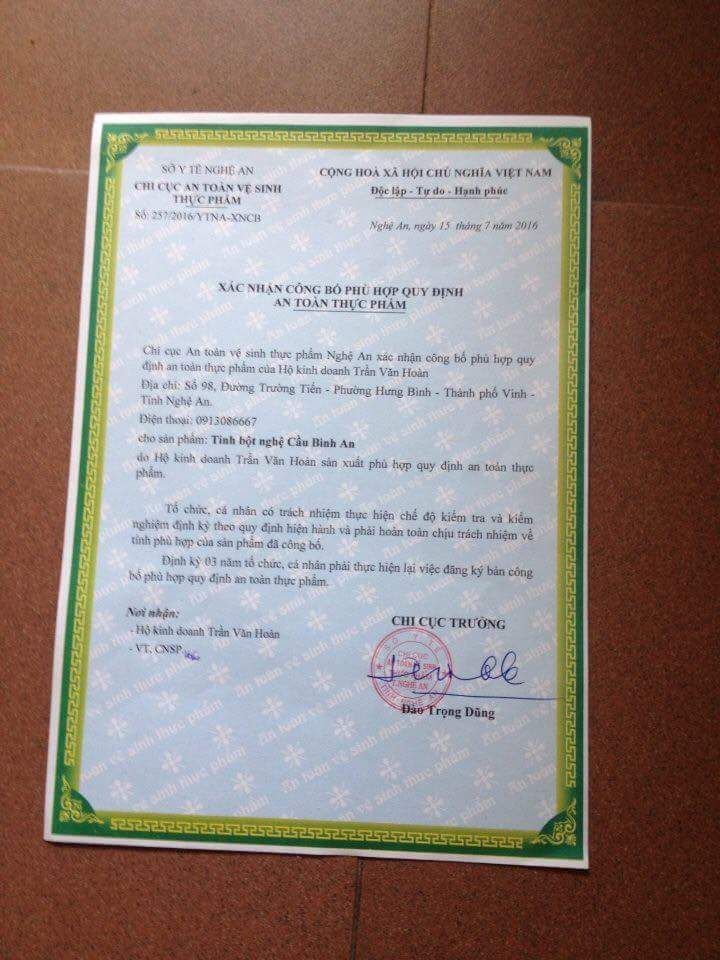 SỞ Y TẾ NGHỆ AN
CHI CỤC AN TOÀN VỆ SINH
THỰC PHẨM
Số: 257/2016/YTNA-XNCB
CỘNG HOÀ XÃ HỘI CHỦ NGHĨA VIỆT NAM
Độc lập - Tự do - Hạnh phúc
Nghệ An, ngày 15 tháng 7 năm 2016
XÁC NHẬN CÔNG BỐ PHÙ HỢP QUY ĐỊNH
AN TOÀN THỰC PHẨM
Chi cục An toàn vệ sinh thực phẩm Nghệ An xác nhận công bố phù hợp quy
định an toàn thực phẩm của Hộ kinh doanh Trần Văn Hoàn
Địa chỉ: Số 98, Đường Trường Tiến - Phường Hưng Bình - Thành phố Vinh -
Tỉnh Nghệ An.
Điện thoại: 0913086667
cho sản phẩm: Tinh bột nghệ Cầu Bình An
do Hộ kinh doanh Trần Văn Hoàn sản xuất phù hợp quy định an toàn thực
phẩm.
Tổ chức, cá nhân có trách nhiệm thực hiện chế độ kiểm tra và kiểm
nghiệm định kỳ theo quy định hiện hành và phải hoàn toàn chịu trách nhiệm về
tính phù hợp của sản phẩm đã công bố.
Định kỳ 03 năm tổ chức, cá nhân phải thực hiện lại việc đăng ký bản công
bố phù hợp quy định an toàn thực phẩm.
Nơi nhận:
- Hộ kinh doanh Trần Văn Hoàn
- VT, CNSP
CHI CỤC TRƯỞNG
SỞ Y TẾ
CHI CỤC
AN TOÀN VỆ SINH
THỰC PHẨM
T.NGHỆ AN
TỈNH NGHỆ AN
Đào Trọng Dũng